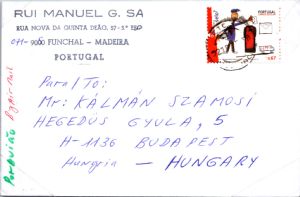 RUI MANUEL G. SA
RUA NOVA DA QUINTA DEÃO, 57-5.º
9000 FUNCHAL - MADEIRA
PORTUGAL
PORTUGAL
Para/To:
Mr: KÁLMÁN SZAMOSI
HEGEDÜS GYULA, 5
H-1136 BUDAPEST
Hungria - HUNGARY
Por Avião
By Air Mail